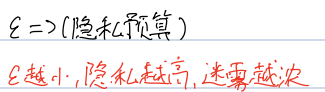 ε=>(隐私预算)
ε越小,隐私越高,迷雾越浓